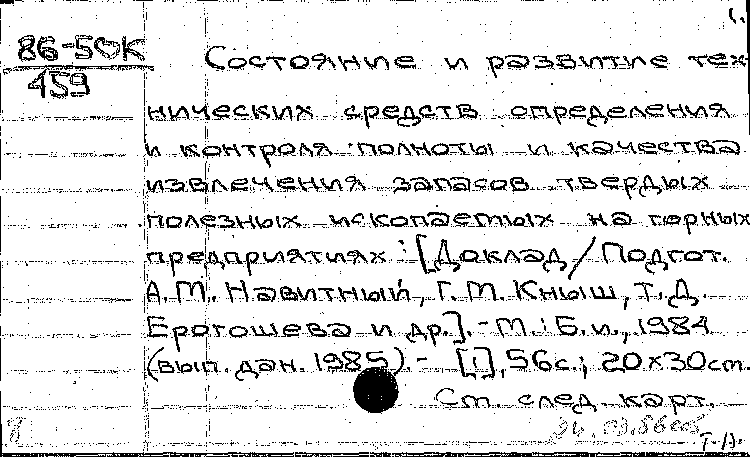 1.
86-50К
459
Состояние и развитие тех-
нических средств определения
и контроля полноты и качества
извлечения запасов твердых
полезных ископаемых на горных
предприятиях : [Доклад / Подгот.
А. М. Навитный, Г. М. Кныш, Т. Д.
Ерогошева и др.]. - М. : Б. и., 1984
(вып. дан. 1985). - [1], 56 с. ; 20×30 см.
См. след. карт.
Т-А.